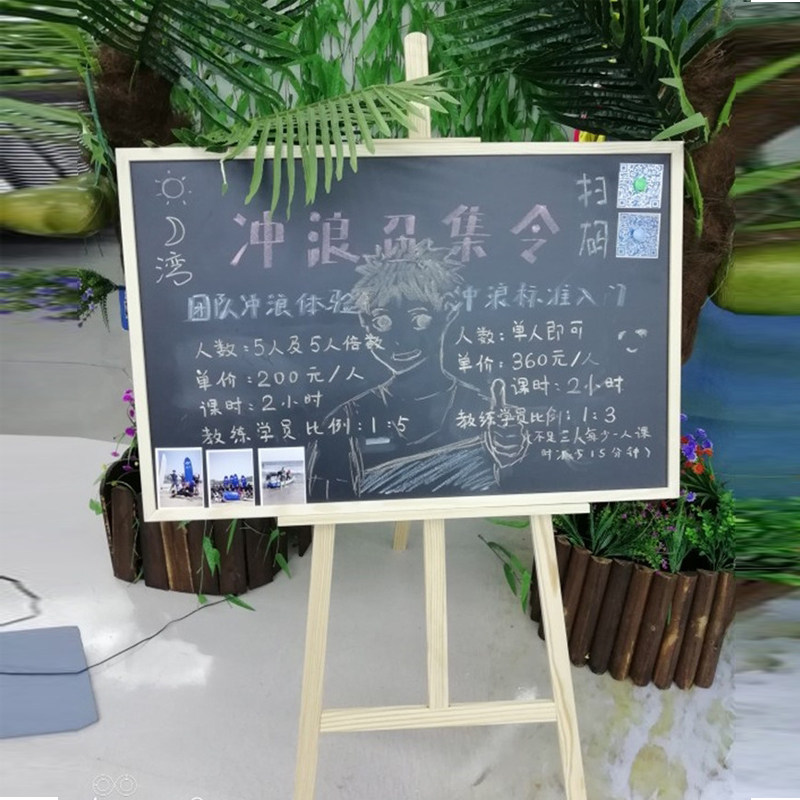 湾
冲浪召集令
扫码
团队冲浪体验
人数:5人及5人倍数
单价:200元/人
课时:2小时
教练学员比例:1:5
冲浪标准入门
人数:单人即可
单价:360元/人
课时:2小时
教练学员比例:1:3
(不足三人每少一人课
时减少15分钟)